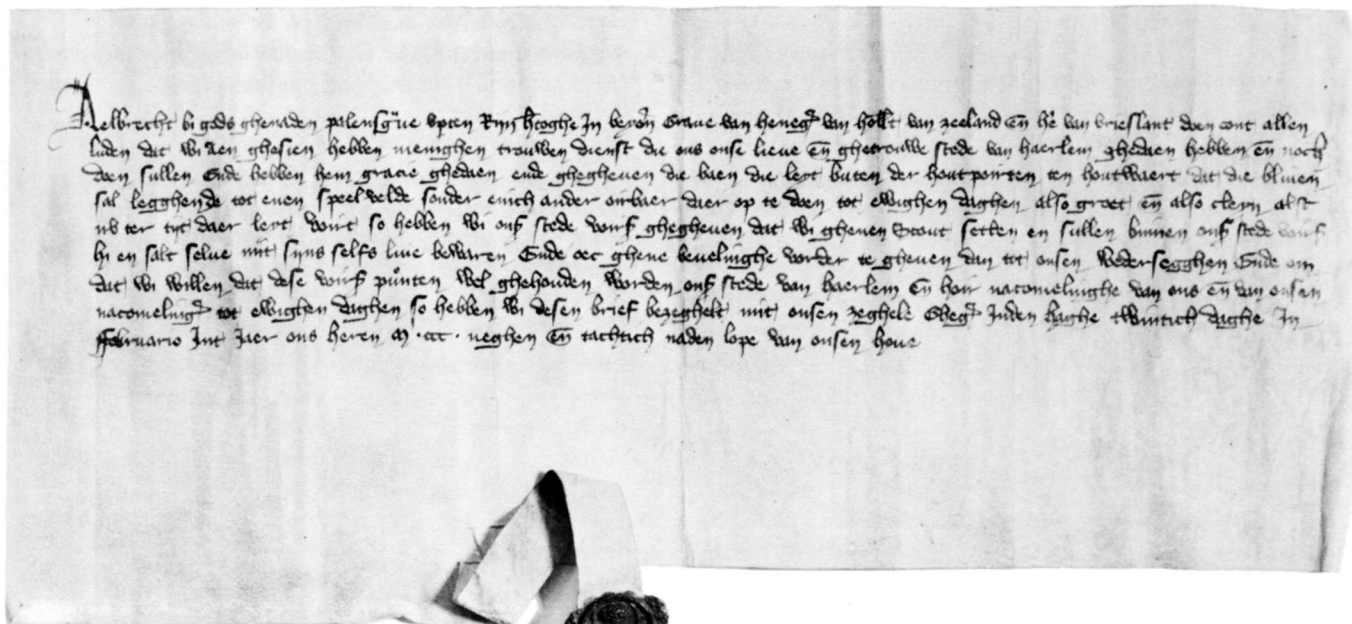 Aelbrecht bi gods ghenaden palensgᵃue vpten Rijn hʼtoghe In beyerʼn Graue van henegʼ van hollʼt van zeeland eñ hʼe van vrieslant doen cont allen
luden dat wi aen ghesien hebben menighen trouwen dienst die ons onse lieue eñ ghetrouwe stede van haerlem ghedaen hebben eñ nochʼ
doen sullen Ende hebben hem gracie ghedaen ende ghegheuen die baen die leyt buten der houtpoirten ten houtwaert dat die bliuen
sal legghende tot enen speel velde sonder enich ander oirbaer daer op te doen tot ewighen daghen also groet eñ also cleyn alst
nv ter tijt daer leyt Voirt so hebben wi onsʼ stede voirsʼ ghegheuen dat wi ghenen Scout setten en sullen binnen onsʼ stede voirsʼ
hi en salt selue mit sijns selfs liue bewaren Ende oec ghene beuelinghe vorder te gheuen dan tot onsen wedersegghen Ende om
dat wi willen dat dese voirsʼ pᵘnten wel ghehouden worden onsʼ stede van haerlem eñ hoir nacomelinghe van ons eñ van onsen
nacomelingʼ tot ewighen daghen so hebben wi desen brief bezeghelt mit onsen zeghele Ghegʼ Inden haghe twintich daghe In
ffebruario Int Jaer ons heren M · ccc · neghen eñ tachtich naden lope van onsen houe